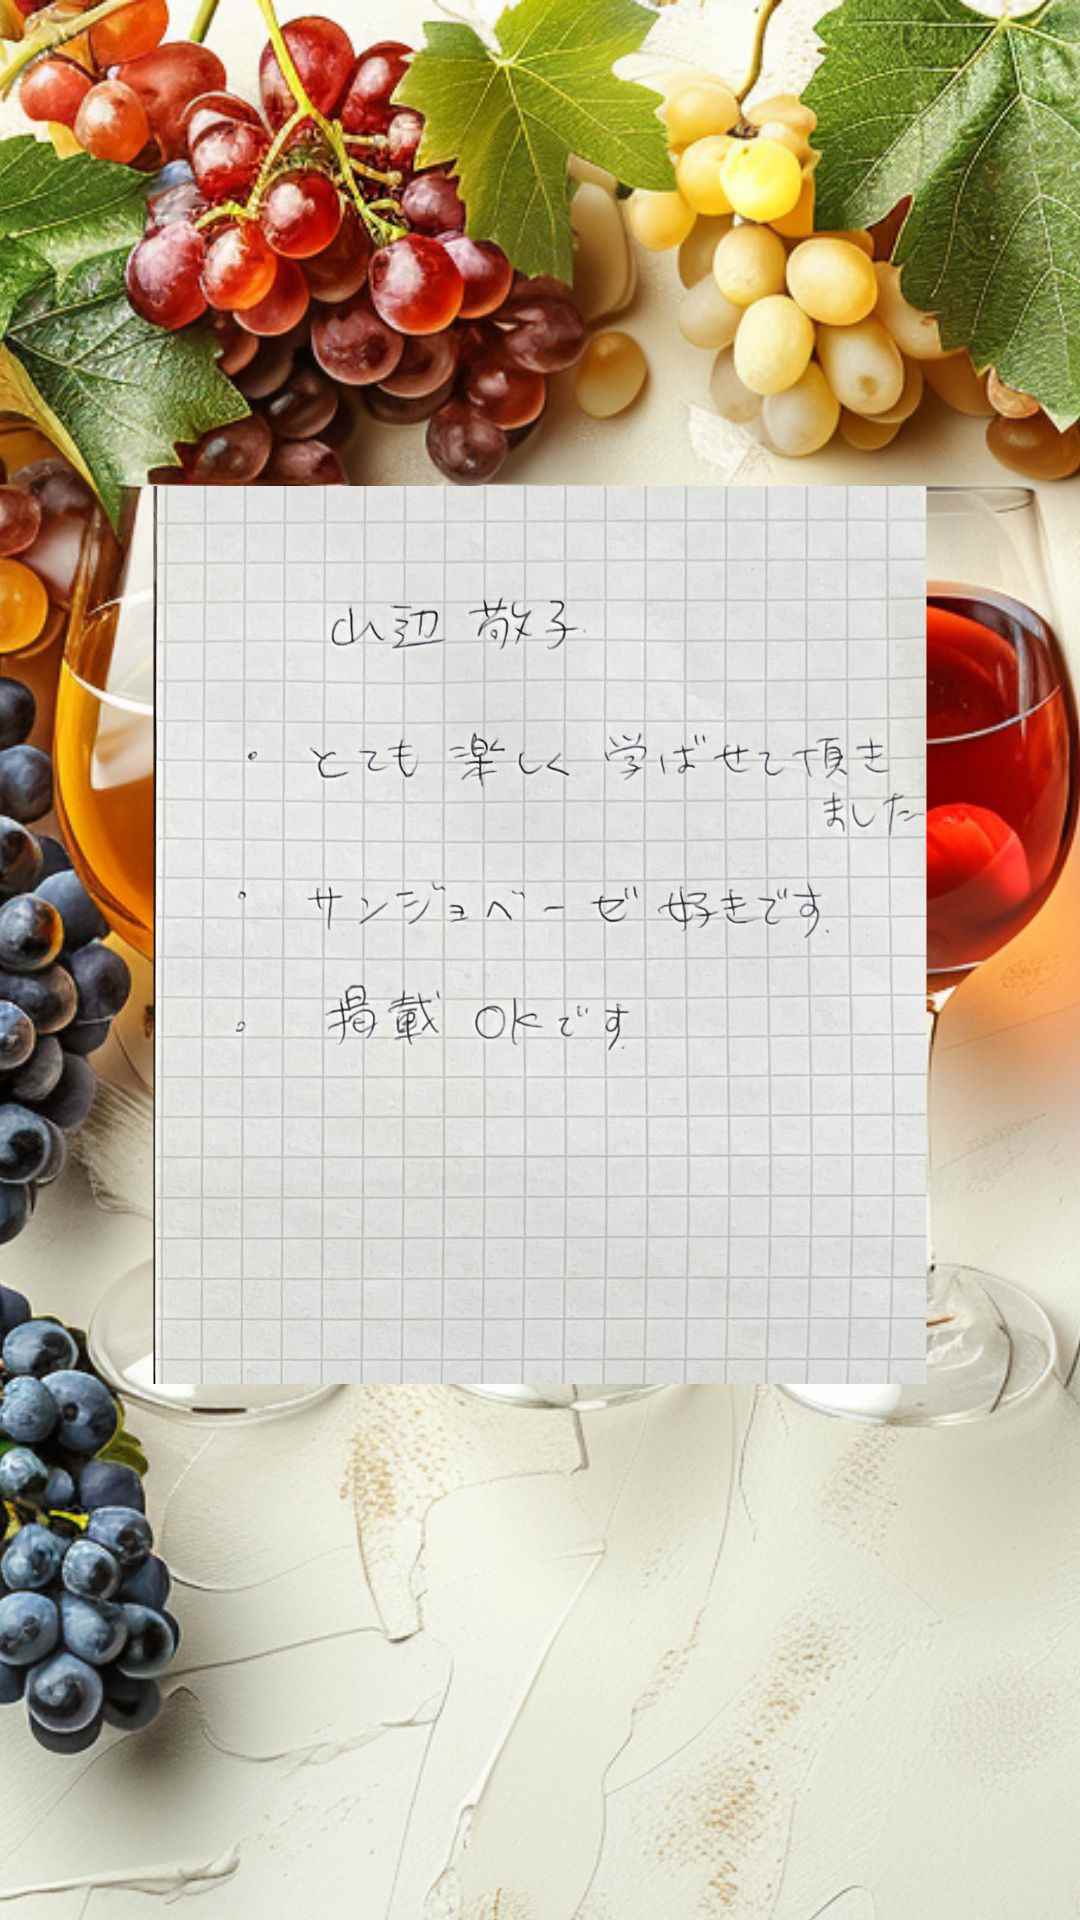 山辺 敬子
・ とても 楽しく 学ばせて頂き
ました
・ サンジョベーゼ 好きです
・ 掲載 OKです